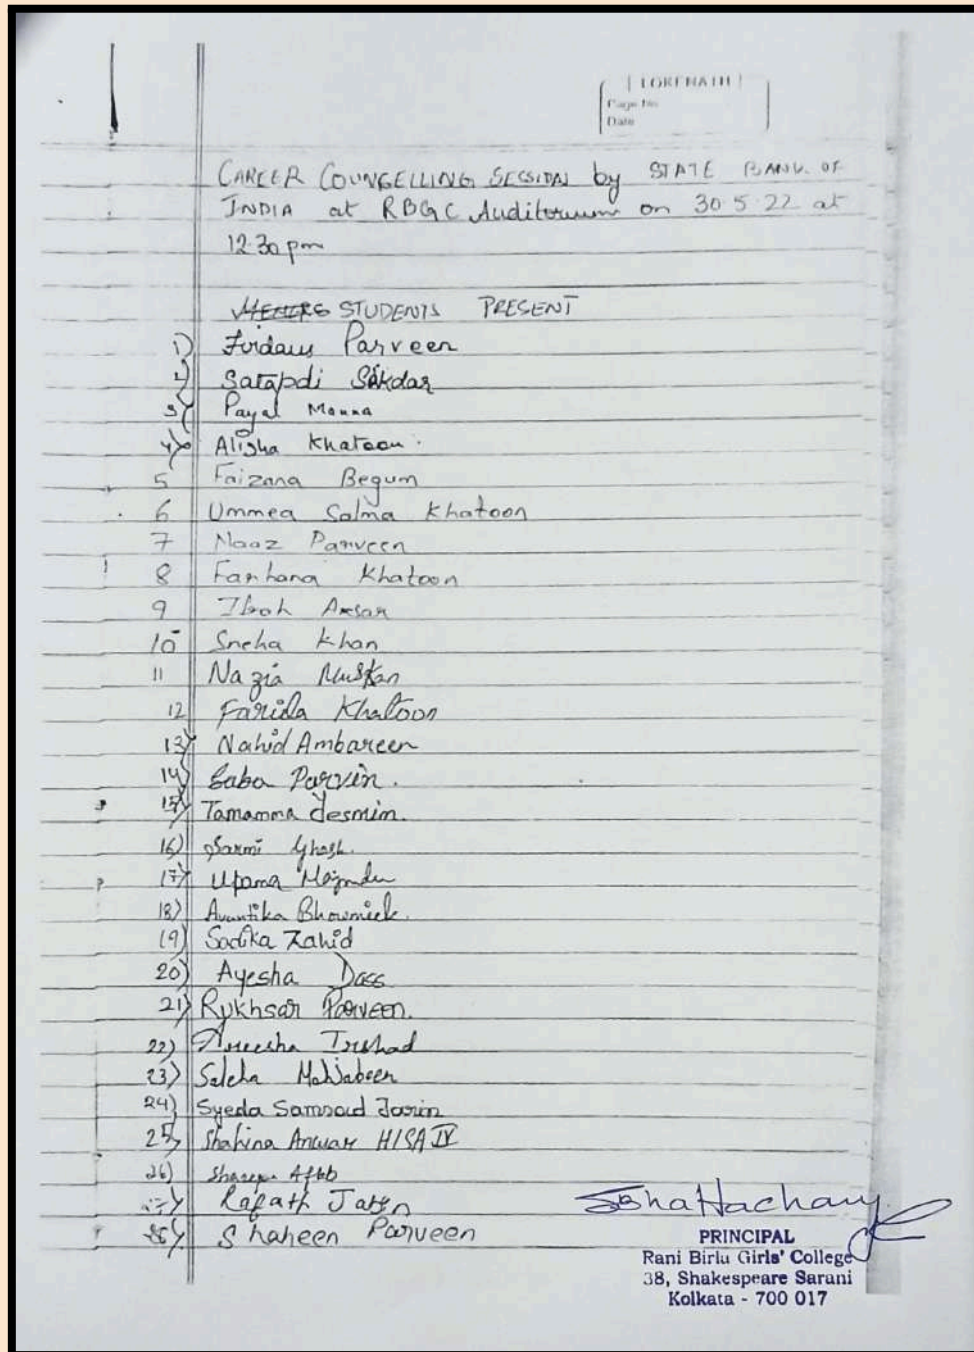 LOKENATH
Page No
Date
CAREER COUNSELLING SESSION by STATE BANK OF
INDIA at RBGC Auditorium on 30 5 22 at
12 30 pm
STUDENTS PRESENT
1) Firdaus Parveen
2) Satapdi Sikdar
3) Payal Manna
4) Alisha Khatoon
5 Faizana Begum
6 Ummea Salma Khatoon
7 Naaz Parveen
8 Farhana Khatoon
9 Ibrah
10 Sneha Khan
11 Nazia Muskan
12 Farida Khatoon
13) Nahid Ambareen
14) Saba Parvin.
15) Tamanna Jesmin.
16) Sarmi Ghosh.
17) Upama
18) Avantika Bhowmick.
19) Sadika Zahid
20) Ayesha Dass
21) Rukhsar Parveen.
22) Irshad
23) Saleha Mahjabeen
24) Syeda Jarin
25) Shahina Anwar HISA IV
26)
27) Rafath
28) Shaheen Parveen
PRINCIPAL
Rani Birla Girls' College
38, Shakespeare Sarani
Kolkata - 700 017